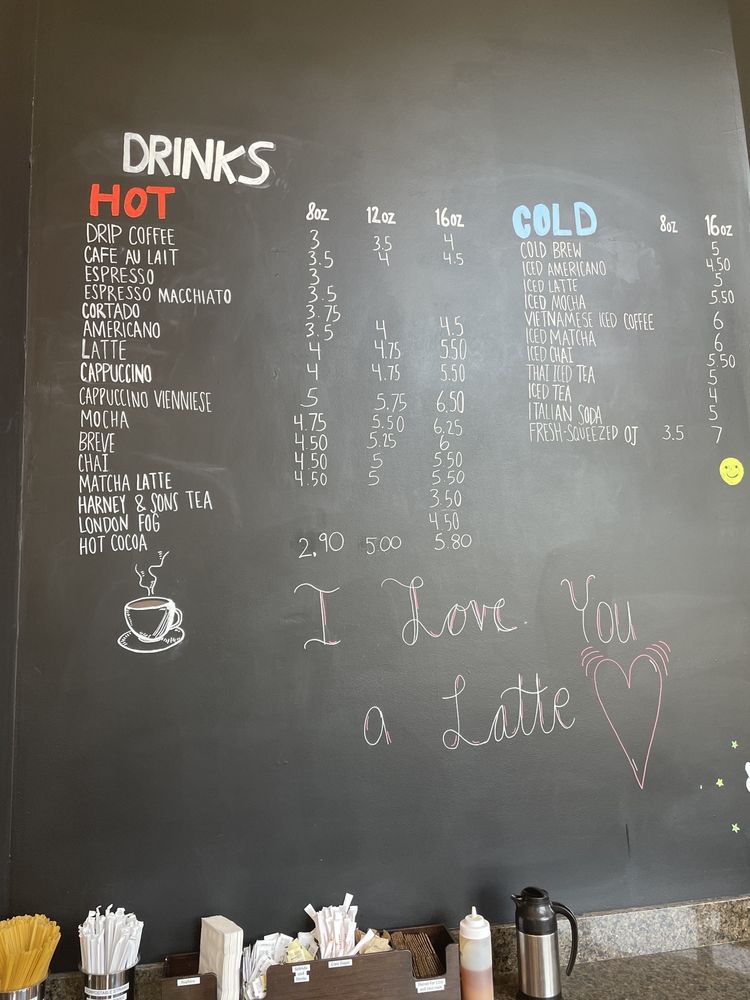 DRINKS
HOT 8oz 12oz 16oz
DRIP COFFEE 3 3.5 4
CAFE AU LAIT 3.5 4 4.5
ESPRESSO 3
ESPRESSO MACCHIATO 3.5
CORTADO 3.75
AMERICANO 3.5 4 4.5
LATTE 4 4.75 5.50
CAPPUCCINO 4 4.75 5.50
CAPPUCCINO VIENNIESE 5 5.75 6.50
MOCHA 4.75 5.50 6.25
BREVE 4.50 5.25 6
CHAI 4.50 5 5.50
MATCHA LATTE 4.50 5 5.50
HARNEY & SONS TEA 3.50
LONDON FOG 4.50
HOT COCOA 2.90 5.00 5.80
COLD 8oz 16oz
COLD BREW 5
ICED AMERICANO 4.50
ICED LATTE 5
ICED MOCHA 5.50
VIETNAMESE ICED COFFEE 6
ICED MATCHA 6
ICED CHAI 5.50
THAI ICED TEA 5
ICED TEA 4
ITALIAN SODA 5
FRESH-SQUEEZED OJ 3.5 7
I Love You
a Latte